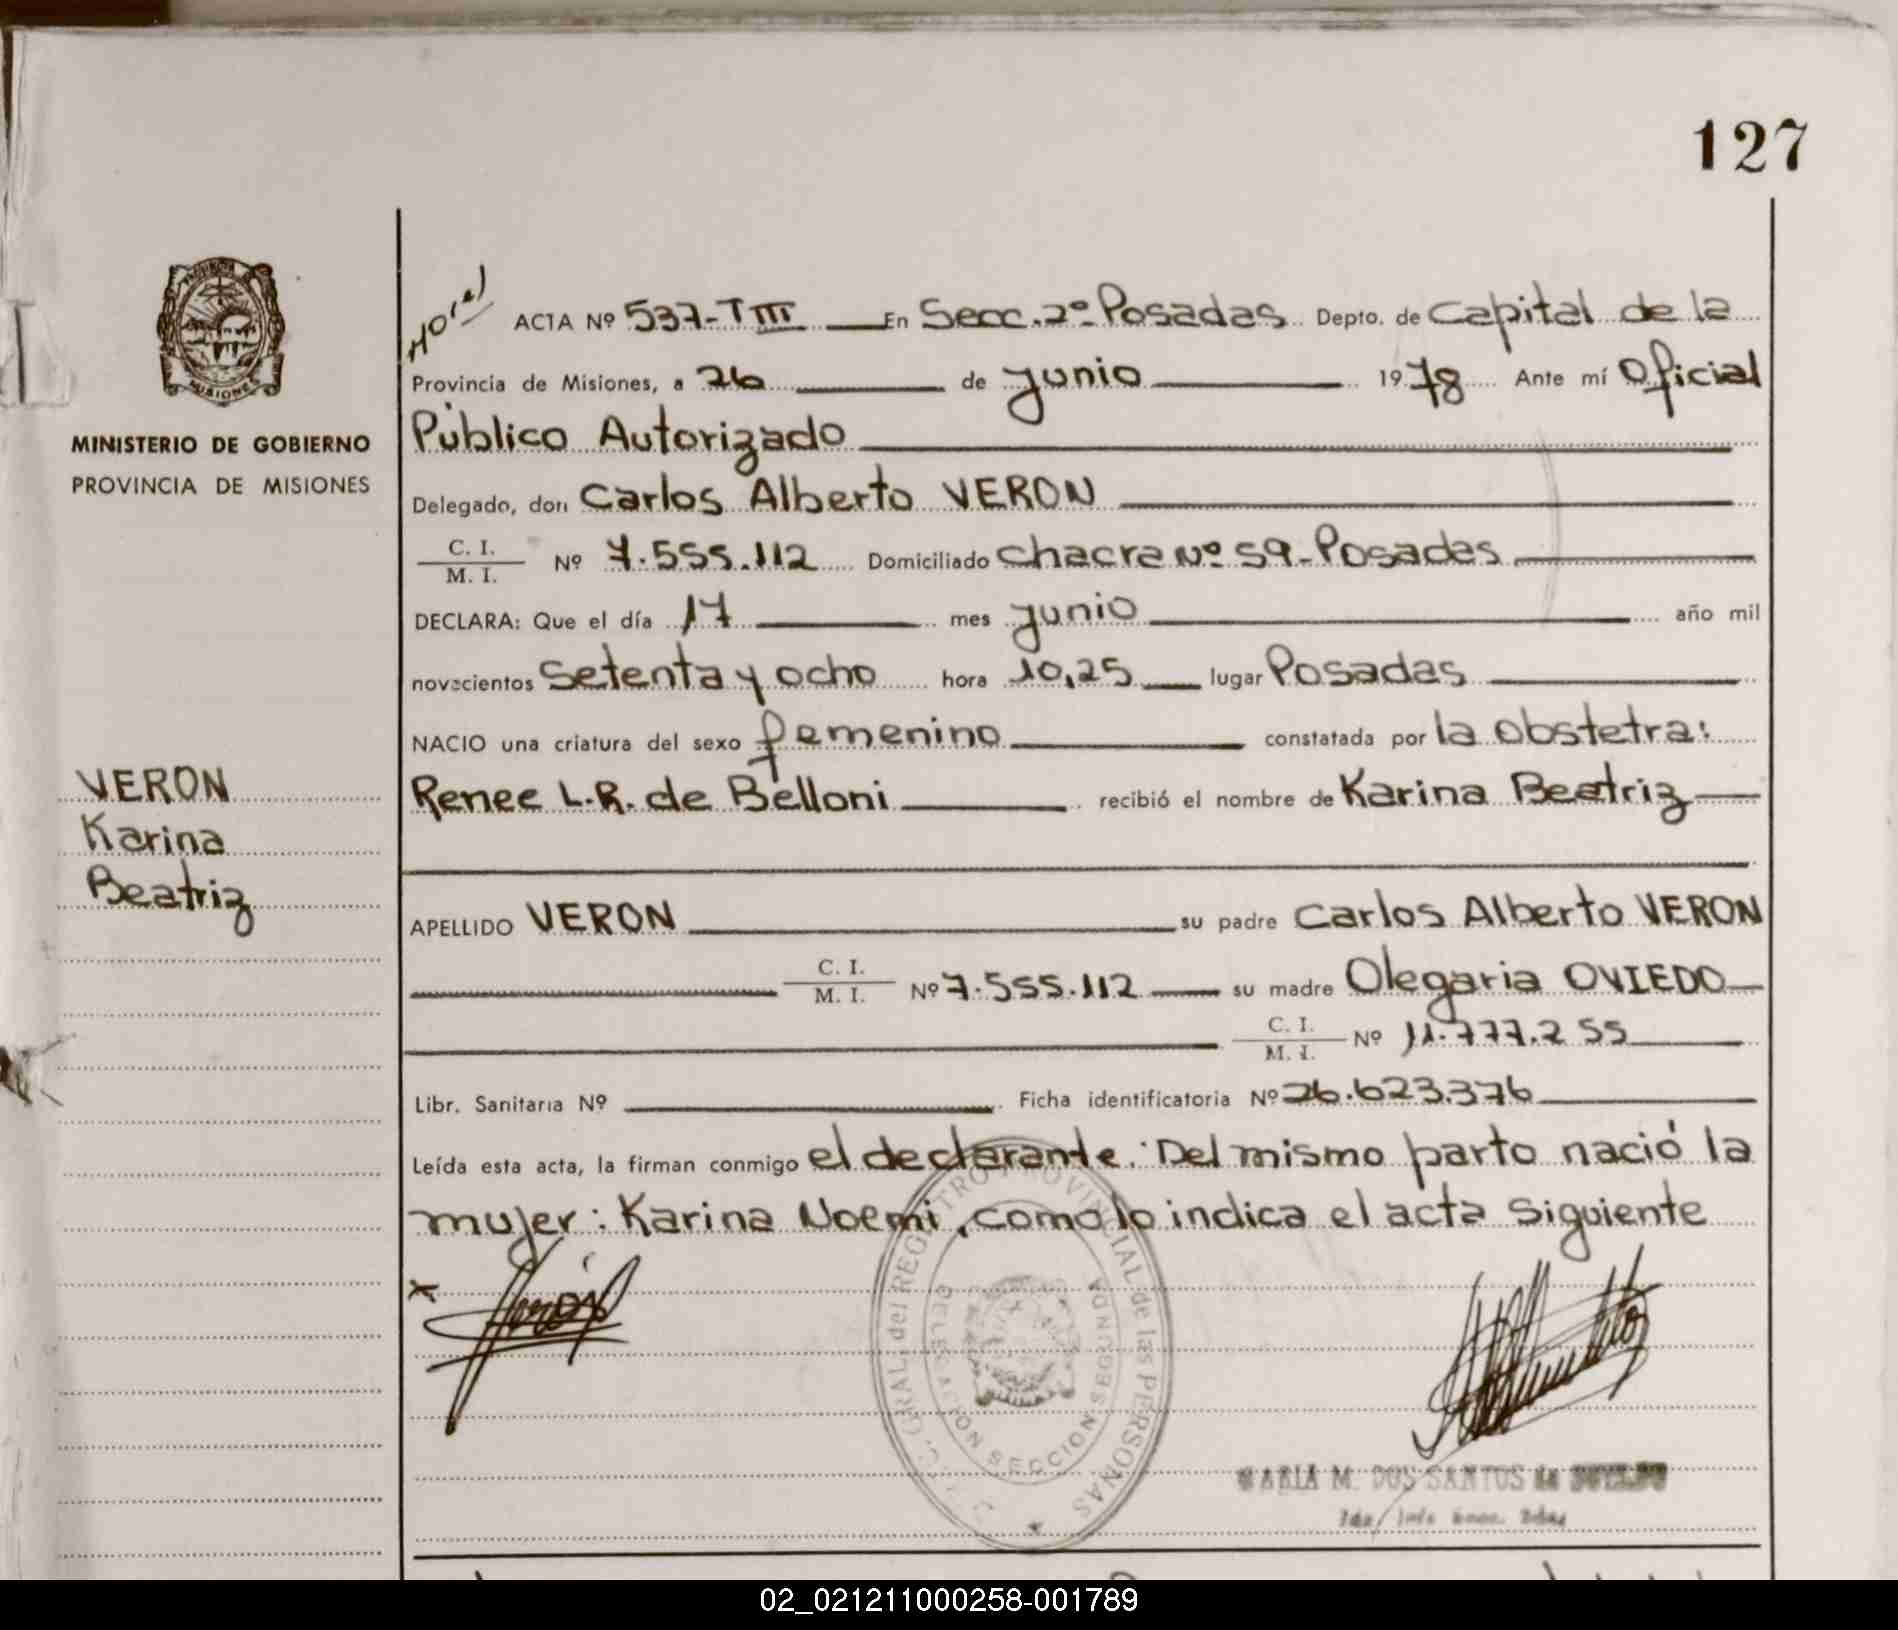 127
ACTA Nº 537-TIII En Secc. 2º Posadas Depto. de Capital de la
Provincia de Misiones, a 26 de junio 1978 Ante mí Oficial
Público Autorizado
Delegado, don Carlos Alberto VERON
C. I.
M. I. Nº 7.555.112 Domiciliado chacra Nº 59-Posadas
DECLARA: Que el día 17 mes junio año mil
novecientos setenta y ocho hora 10,25 lugar Posadas
NACIO una criatura del sexo femenino constatada por la obstetra:
Renee L.R. de Belloni recibió el nombre de Karina Beatriz
APELLIDO VERON su padre Carlos Alberto VERON
C. I.
M. I. Nº 7.555.112 su madre Olegaria OVIEDO
C. I.
M. I. Nº 11.777.255
Libr. Sanitaria Nº Ficha identificatoria Nº 26.623.376
Leída esta acta, la firman conmigo el declarante. Del mismo parto nació la
mujer: Karina Noemi, como lo indica el acta siguiente
MINISTERIO DE GOBIERNO
PROVINCIA DE MISIONES
VERON
Karina
Beatriz
GRAL. del REGISTRO PROVINCIAL de las PERSONAS
DELEGACION SECCION SEGUNDA
MARIA M. DOS SANTOS de
02_021211000258-001789